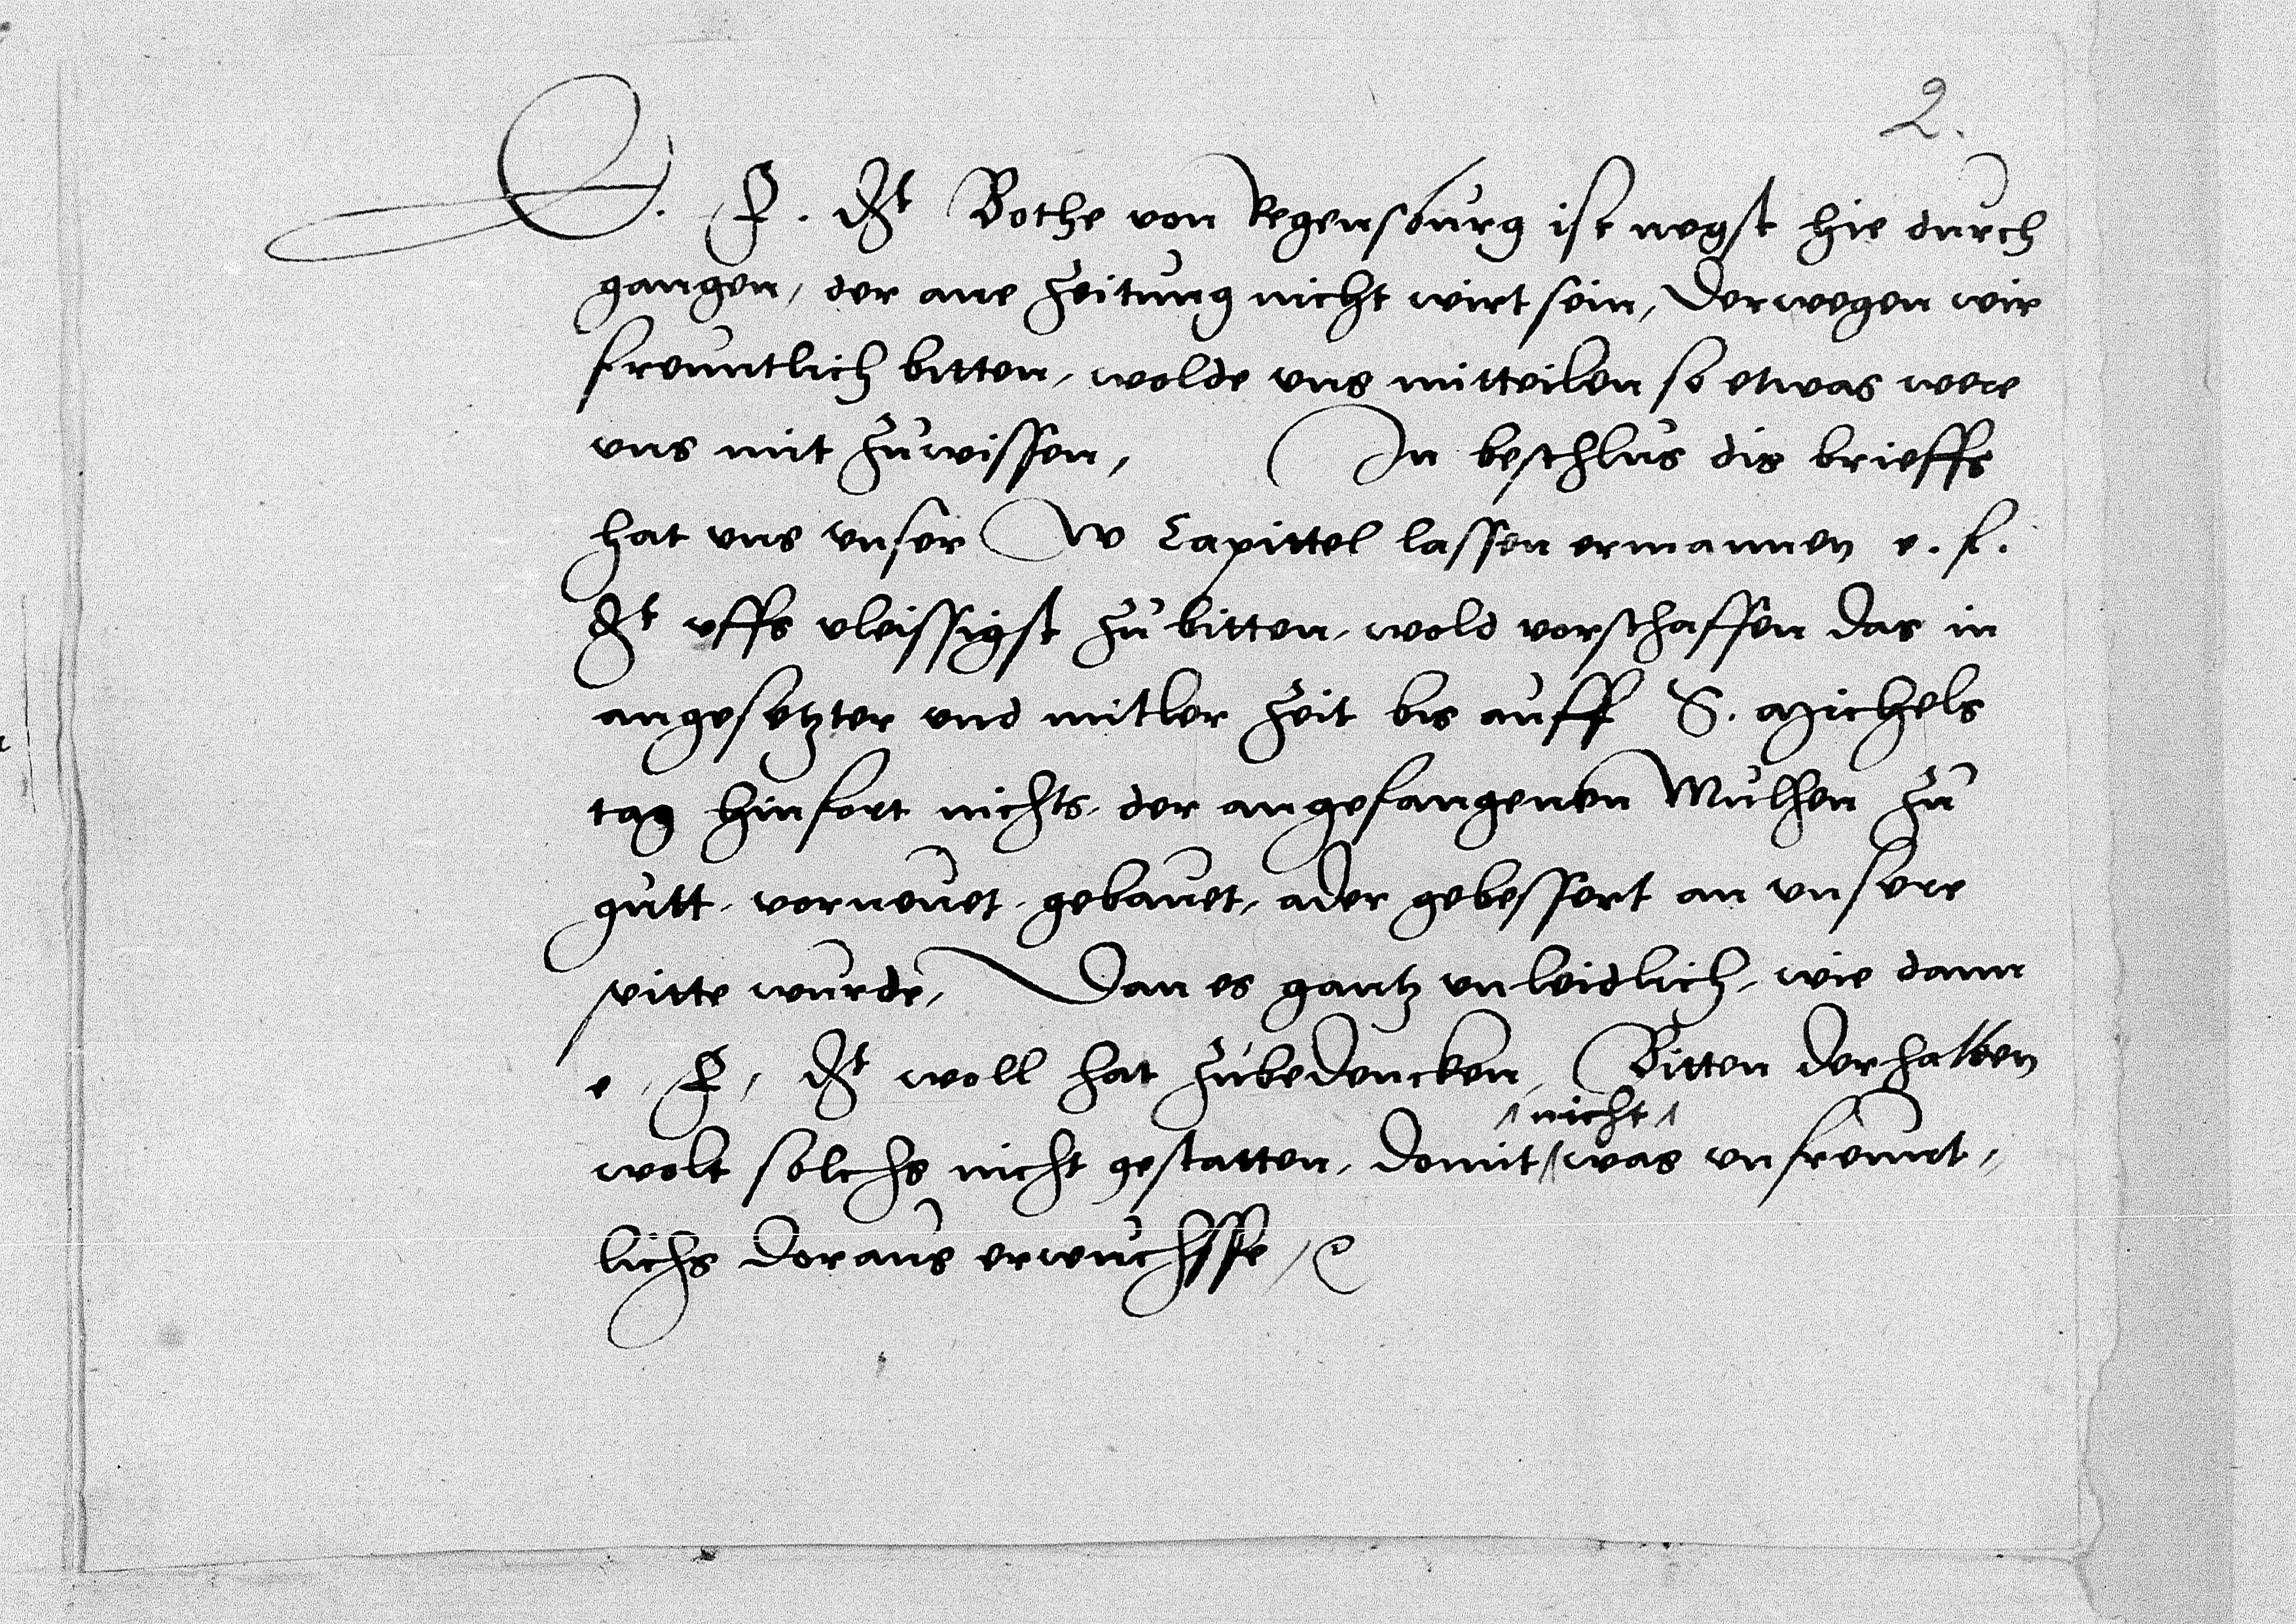 2.
E. F. Gt Bothe von Regensburg ist negst hie durch
gangen, der ane Zeitung nicht wirt sein, Derwegen wir
freuntlich bitten, wolde vns mitteilen so etwas were
vns mit zuwissen, In beschlus dis brieffs
hat vns vnser W Capittel lassen ermannen e. f.
Gt vffs vleissigst zu bitten, wold vorschaffen das in
angesetzter vnd mitler Zeit bis auff S. Michels
tag hinfort nichts, der angefangenen Mulhen zu
gutt, vorneuet, gebauet, ader gebessert an vnsere
seitte wurde, Dan es gantz vnleidlich, wie dann
e, F, Gt woll hat zubedencken, Bitten derhalben
wolt solchs nicht gestatten, domit nicht was vnfreunt,,
lichs doraus erwuchsse, etc